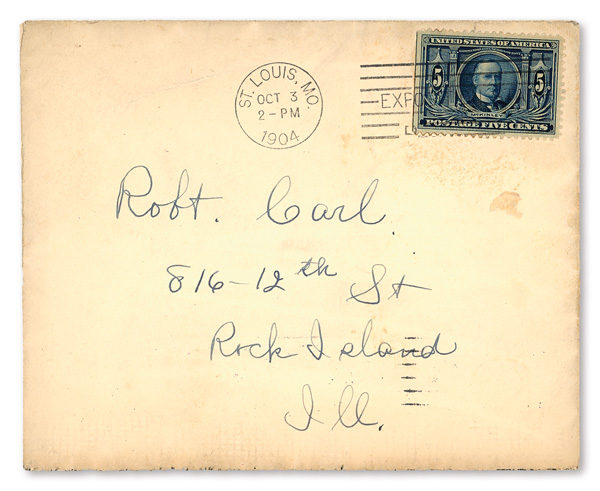 UNITED STATES OF AMERICA
5 5
POSTAGE FIVE CENTS
ST. LOUIS, MO.
OCT 3
2-PM
1904
Robt. Carl
816-12th St
Rock Island
Ill.